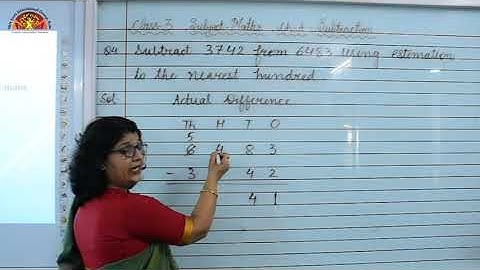 Class-3 Subject-Maths Subtraction
Q4 Subtract 3742 from 6483 using estimation
to the nearest hundred.
Sol: Actual Difference
Th H T O
5
6 4 8 3
- 3 4 2
4 1